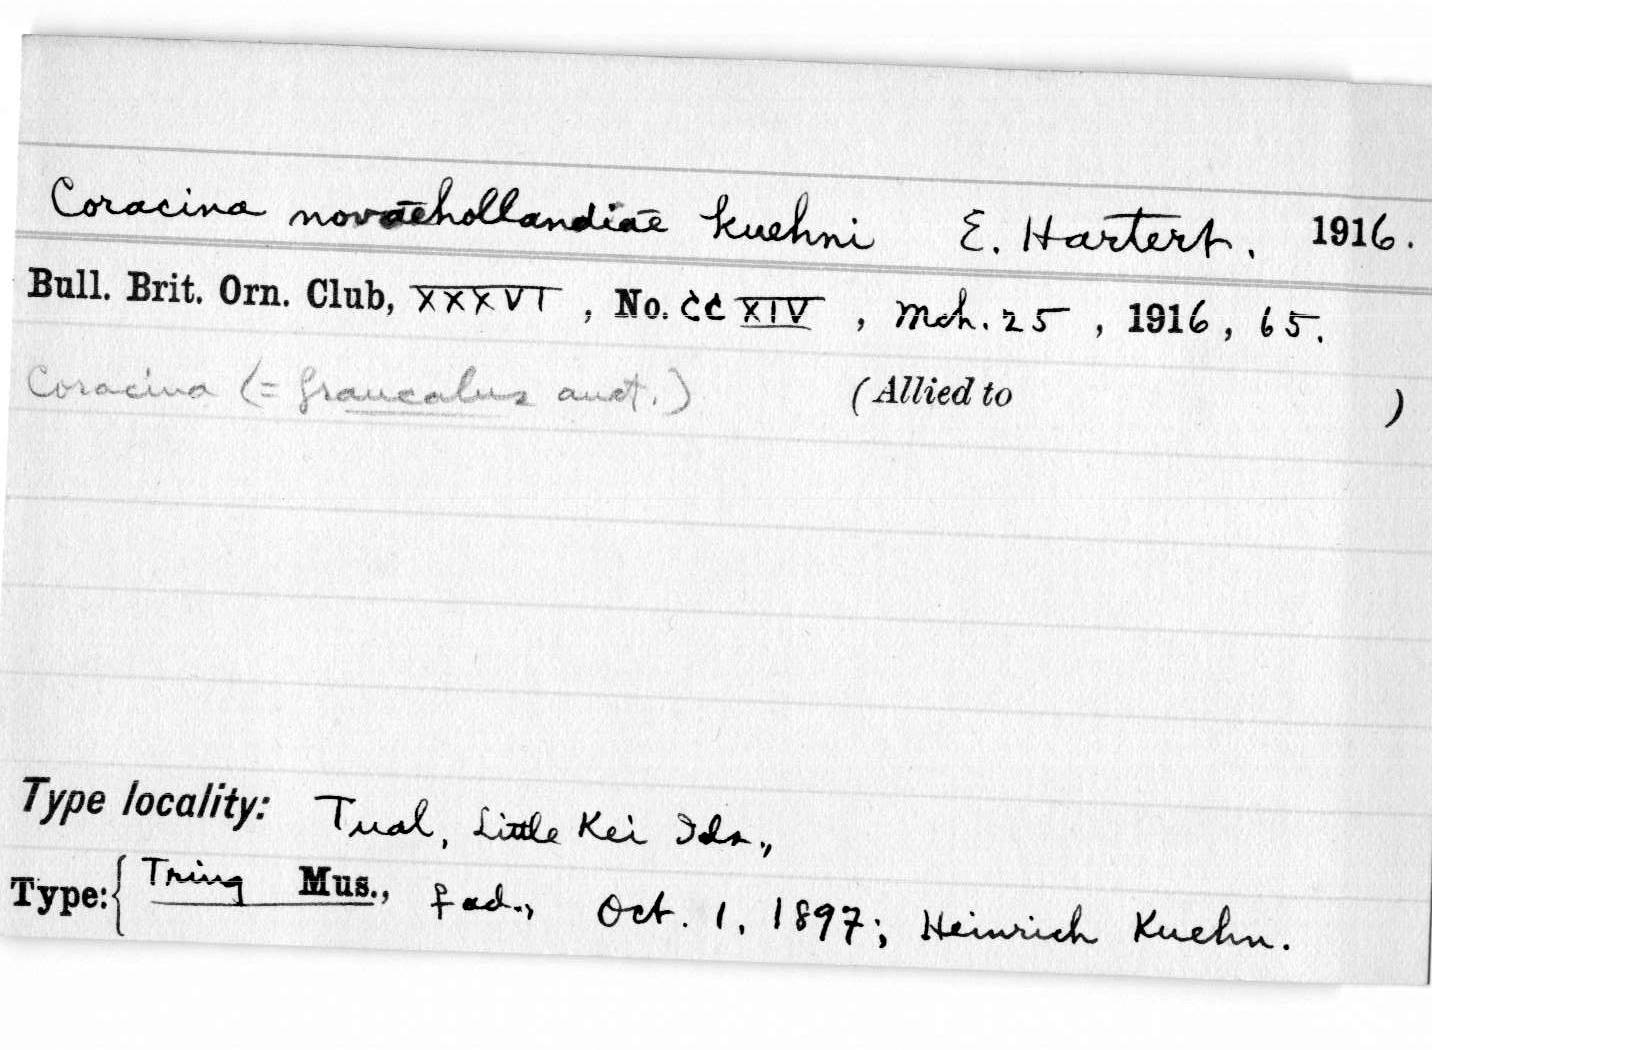 Coracina novaehollandiae kuehni E. Hartert, 1916.
Bull. Brit. Orn. Club, XXXVI, No. CCXIV, Mch. 25, 1916, 65.
Coracina (= Graucalus auct.) (Allied to )
Type locality: Tual, Little Kei Ids.,
Type: { Tring Mus., ♀ ad., Oct. 1, 1897; Heinrich Kuehn.